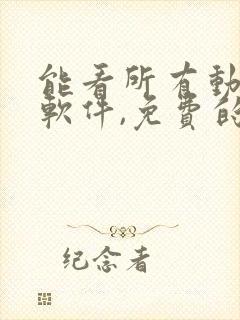 能看所有動
軟件,免費的
纪念者